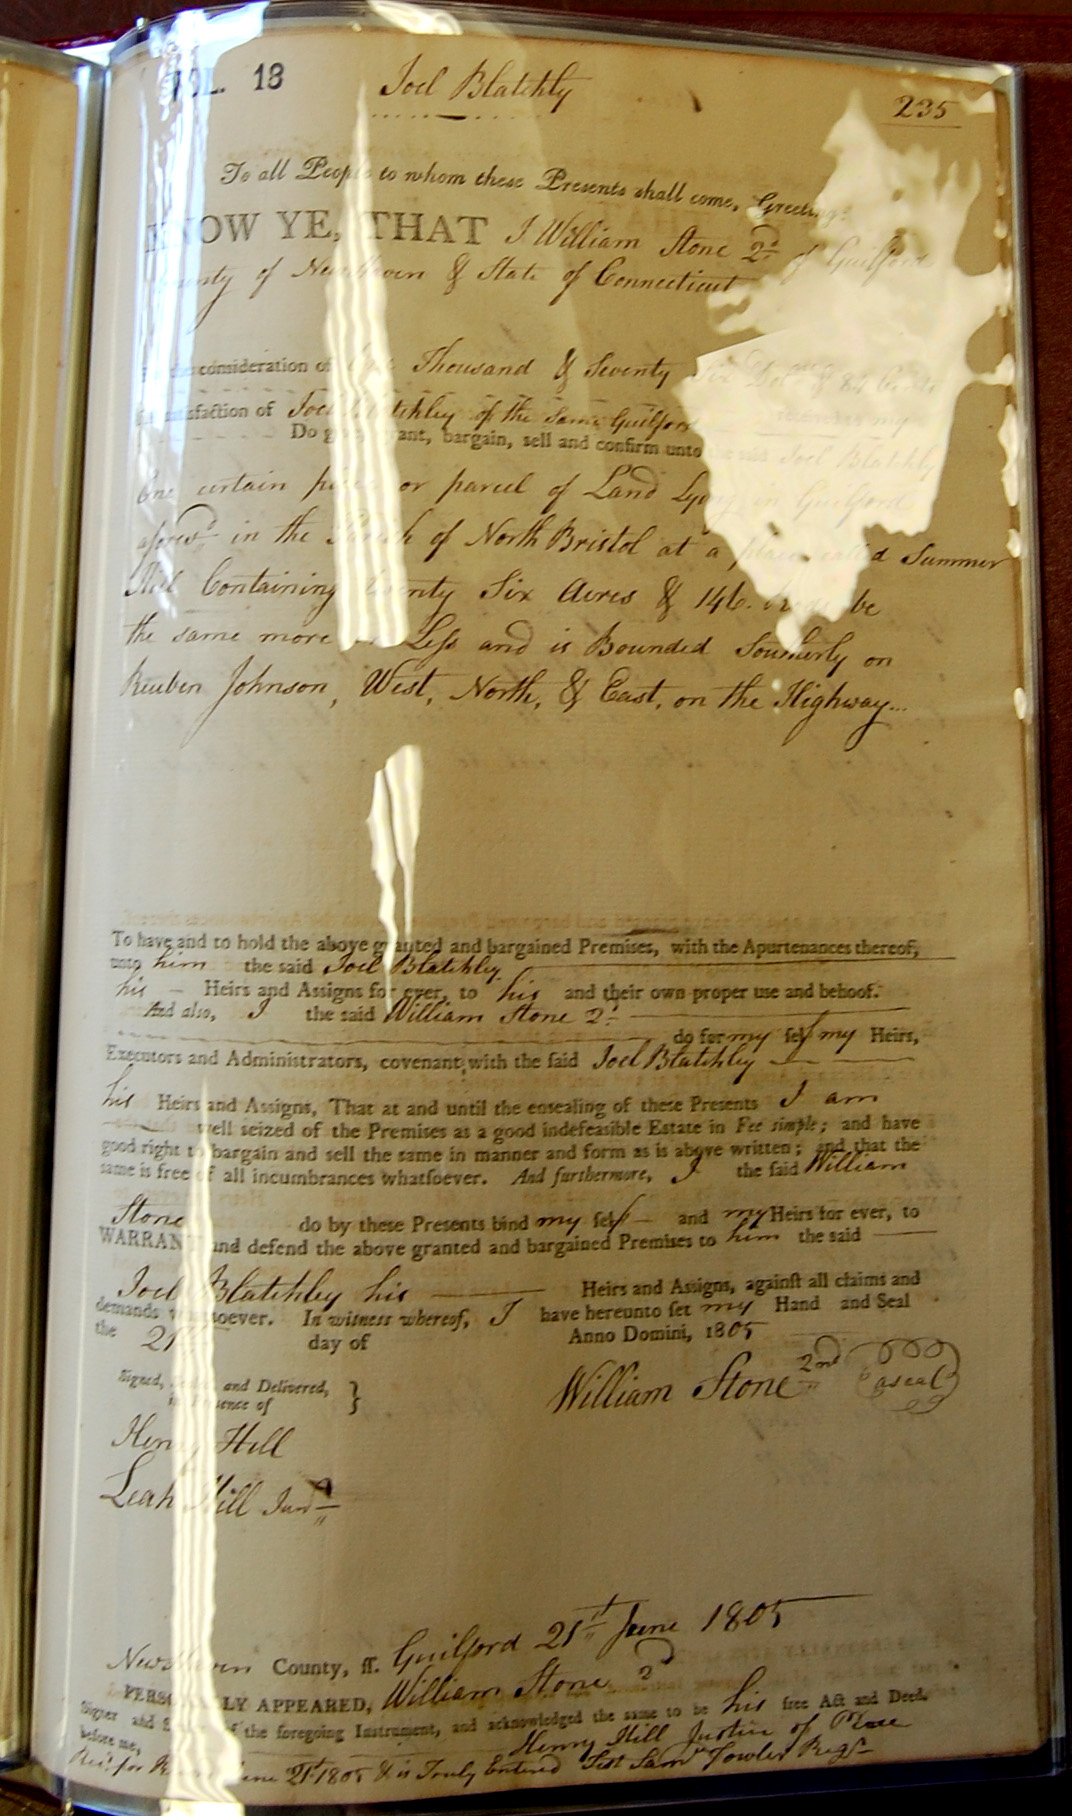 VOL. 18 Joel Blatchly 235
To all People to whom these Presents shall come, Greeting:
KNOW YE, THAT I William Stone 2d of Guilford
County of New Haven & State of Connecticut
consideration of One Thousand & Seventy Six Doll.s & 84 Cents
satisfaction of Joel Blatchley of the same Guilford
Do give, grant, bargain, sell and confirm unto the said Joel Blatchly
One certain piece or parcel of Land Lying in Guilford
aforesd in the Parish of North Bristol at a place called Summer
Hill Containing Twenty Six Acres & 146. Rods be
the same more or Less and is Bounded Southerly on
Reuben Johnson, West, North, & East, on the Highway...
To have and to hold the above granted and bargained Premises, with the Apurtenances thereof,
unto him the said Joel Blatchley
his Heirs and Assigns for ever, to his and their own proper use and behoof.
And also, I the said William Stone 2d
do for my self my Heirs,
Executors and Administrators, covenant with the said Joel Blatchley
his Heirs and Assigns, That at and until the ensealing of these Presents I am
well seized of the Premises as a good indefeasible Estate in Fee simple; and have
good right to bargain and sell the same in manner and form as is above written; and that the
same is free of all incumbrances whatsoever. And furthermore, I the said William
Stone do by these Presents bind my self and my Heirs for ever, to
WARRANT and defend the above granted and bargained Premises to him the said
Joel Blatchley his Heirs and Assigns, against all claims and
demands whatsoever. In witness whereof, I have hereunto set my Hand and Seal
the 21st day of Anno Domini, 1805
Signed, Sealed and Delivered,
in Presence of } William Stone 2nd a seal
Henry Hill
Leah Hill Junr
New Haven County, ss. Guilford 21st June 1805
PERSONALLY APPEARED, William Stone 2d
Signer and Sealer of the foregoing Instrument, and acknowledged the same to be his free Act and Deed,
before me, Henry Hill Justice of Peace
Recd for Record June 21st 1805 & is Truly Entered Test Saml Fowler Regr